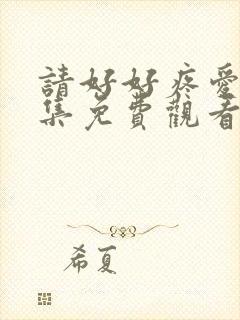 請好好疼愛
集免費觀看
希夏